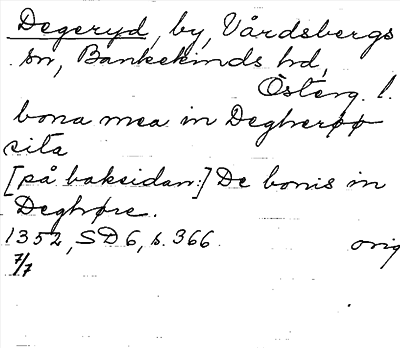 Degeryd, by, Vårdsbergs
sn, Bankekinds hd,
Österg. l.
bona mea in Degherøø
sita
[på baksidan:] De bonis in
Deghøre.
1352, SD 6, s. 366. orig
7/7